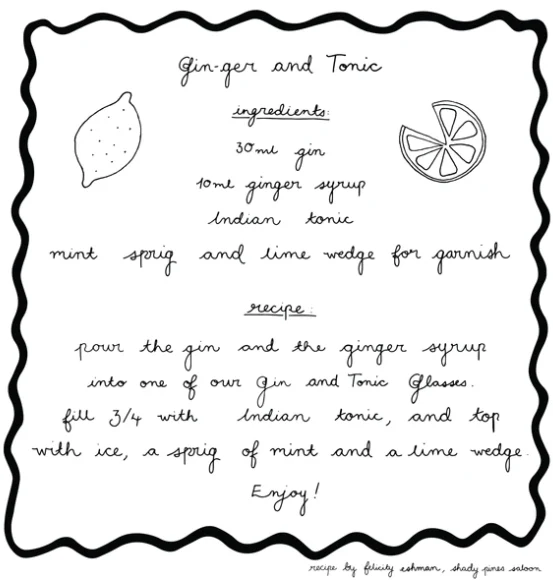 Gin-ger and Tonic
ingredients:
30ml gin
10ml ginger syrup
Indian tonic
mint sprig and lime wedge for garnish
recipe:
pour the gin and the ginger syrup
into one of our Gin and Tonic Glasses.
fill 3/4 with Indian tonic, and top
with ice, a sprig of mint and a lime wedge.
Enjoy!
recipe by felicity eshman, shady pines saloon